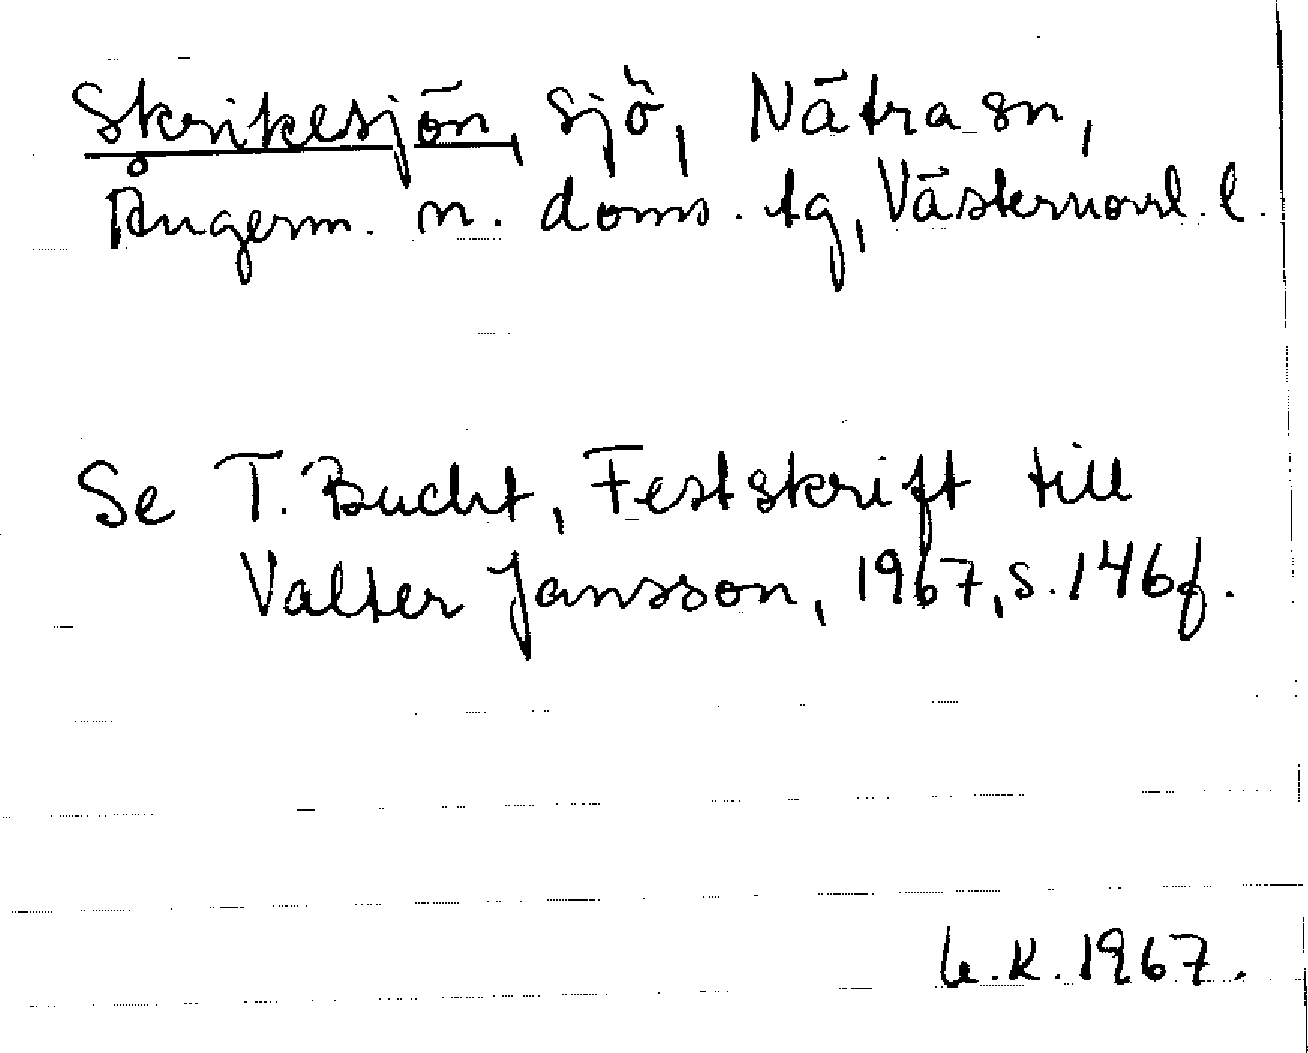 Skrikesjön, sjö, Nätra sn,
Ångerm. n. doms. tg, Västernorrl. l.
Se T. Bucht, Festskrift till
Valter Jansson, 1967, s. 146 f.
K. 1967.